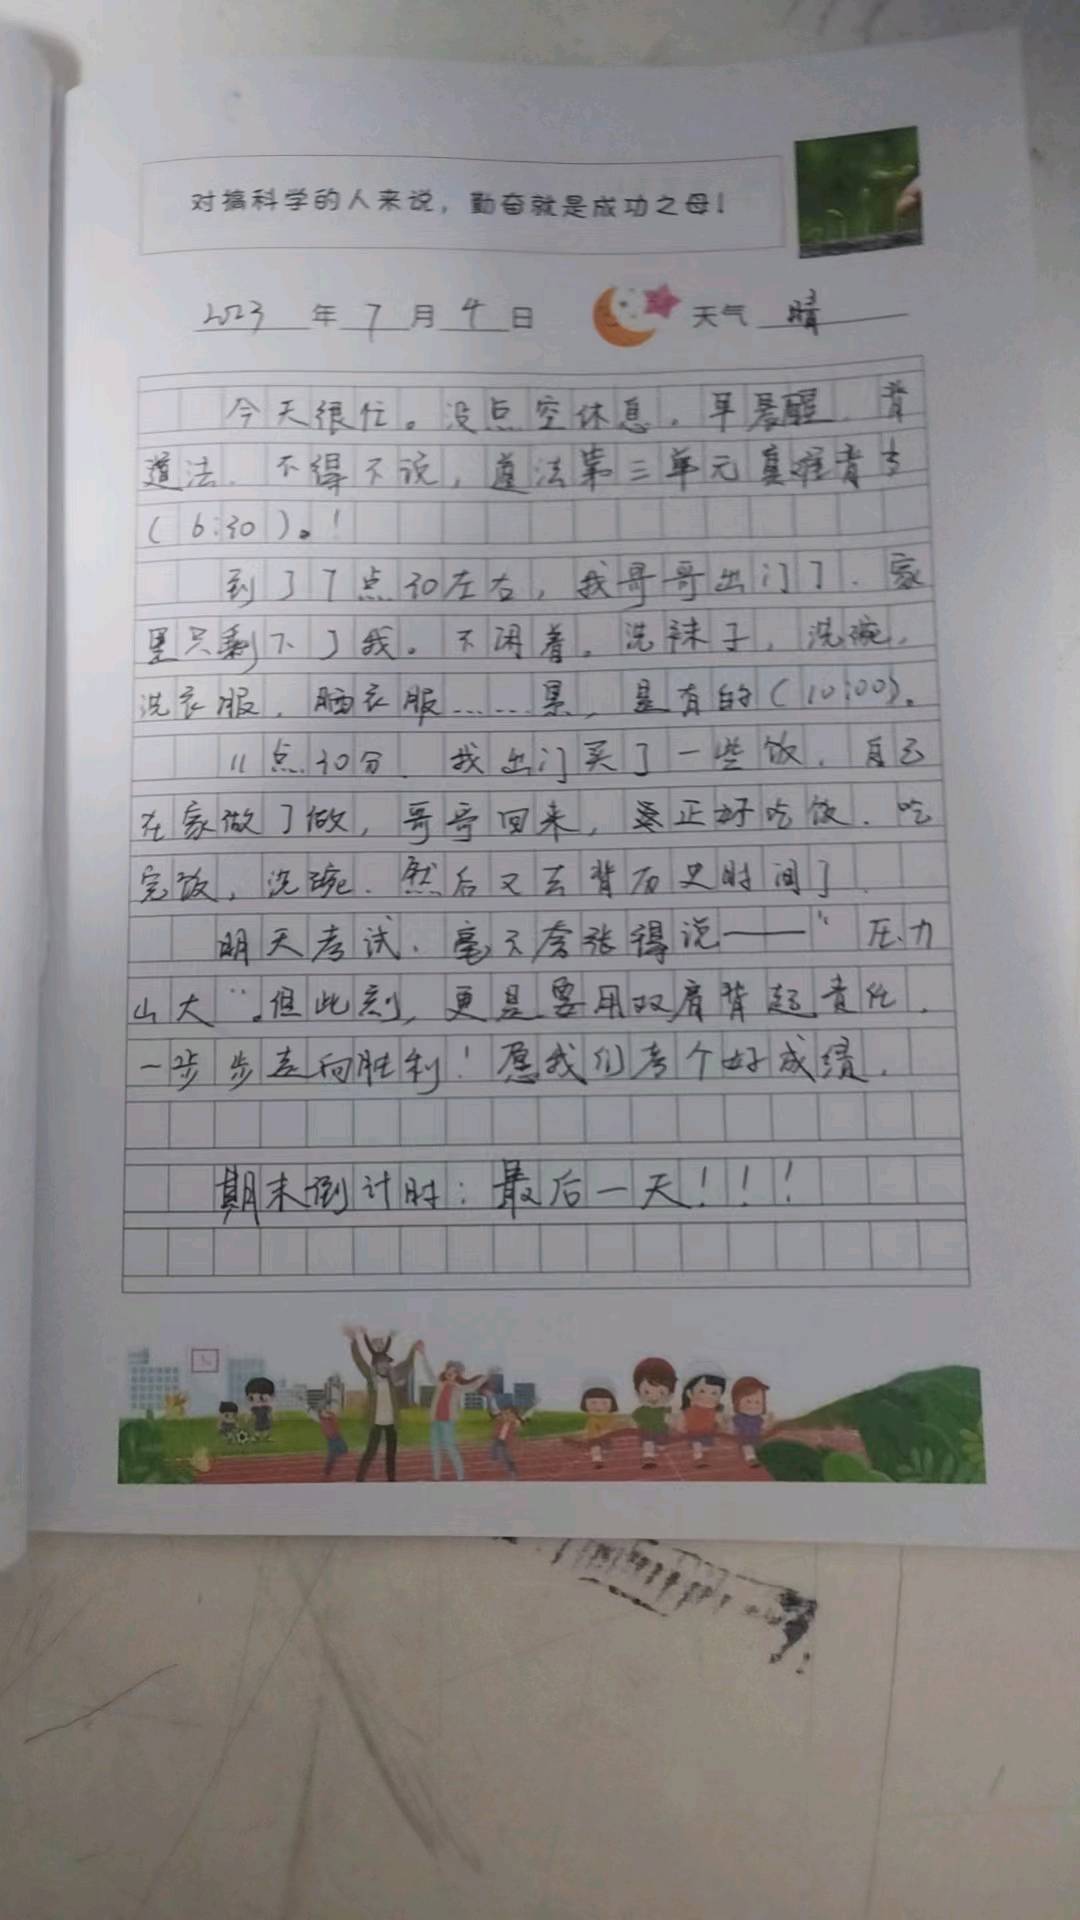 对搞科学的人来说，勤奋就是成功之母！
2023年7月4日 天气 晴
今天很忙。没点空休息。早晨醒，背
道法，不得不说，道法第三单元真难背
(6:30)。！
到了7点30左右，我哥哥出门了，家
里只剩下了我。不闲着，洗袜子，洗碗，
洗衣服，晒衣服……累，是有的(10:00)。
11点30分，我出门买了一些饭，自己
在家做了做，哥哥回来，正好吃饭，吃
完饭，洗碗，然后又去背历史时间了，
明天考试，毫不夸张得说——“压力
山大”。但此刻，更是要用双肩背起责任，
一步步走向胜利！愿我们考个好成绩，
期末倒计时：最后一天！！！